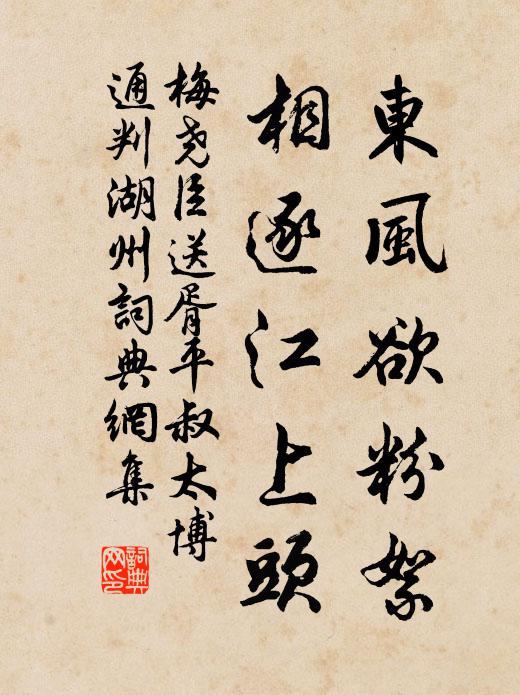 東風欲粉絮
相逐江上頭
梅堯臣送胥平叔太博
通判湖州詞典網集
詞典
网印